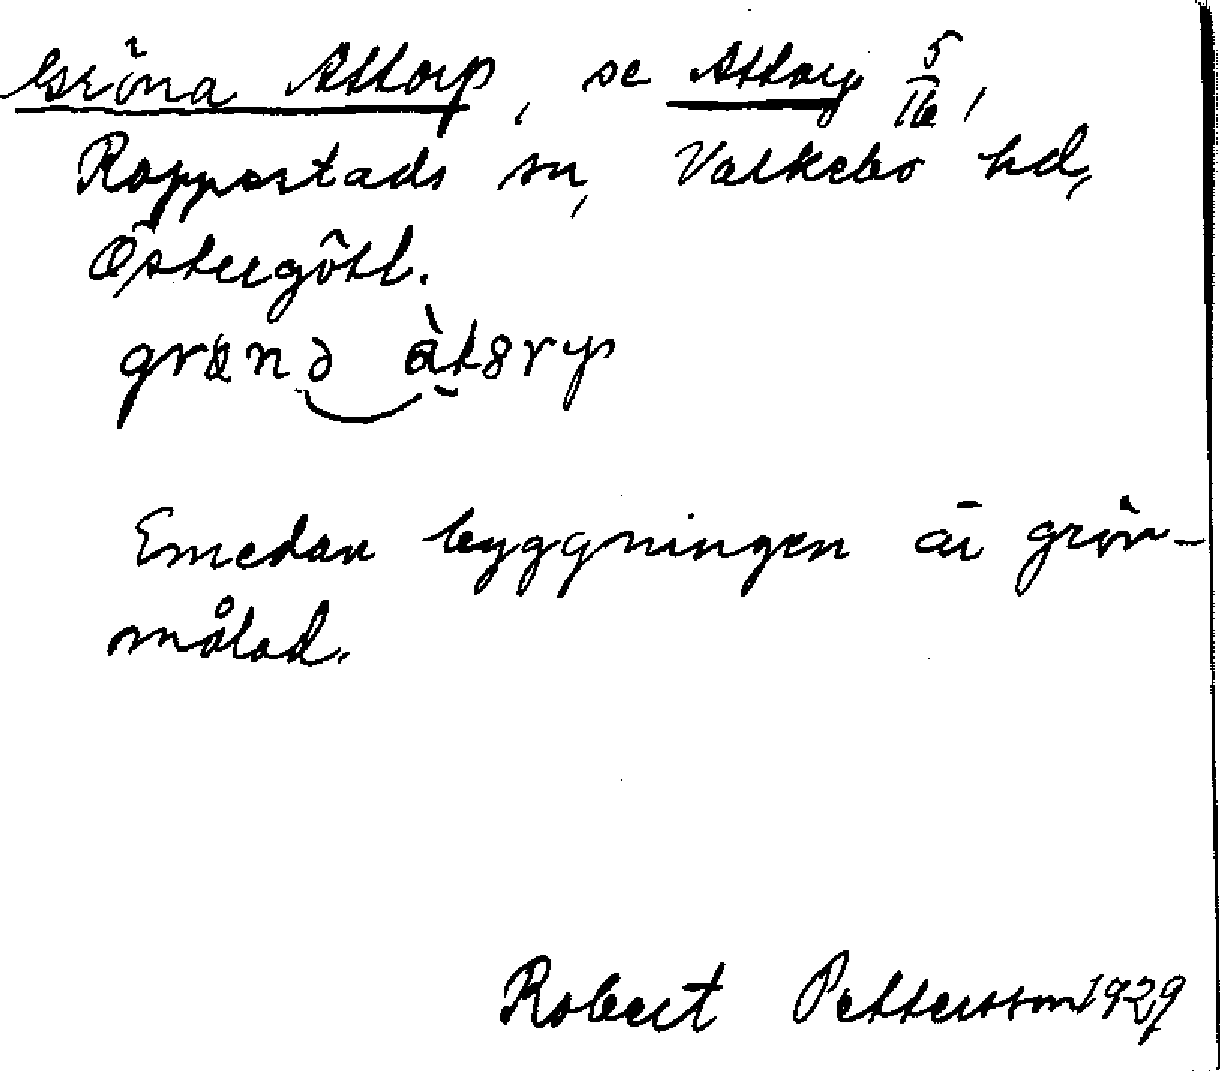 Gröna Attorp, se Attorp 5/16,
Rappestads sn, Valkebo hd,
Östergötl.
grønə àtørp
Emedan byggningen är grön-
målad.
Robert Pettersson 1929